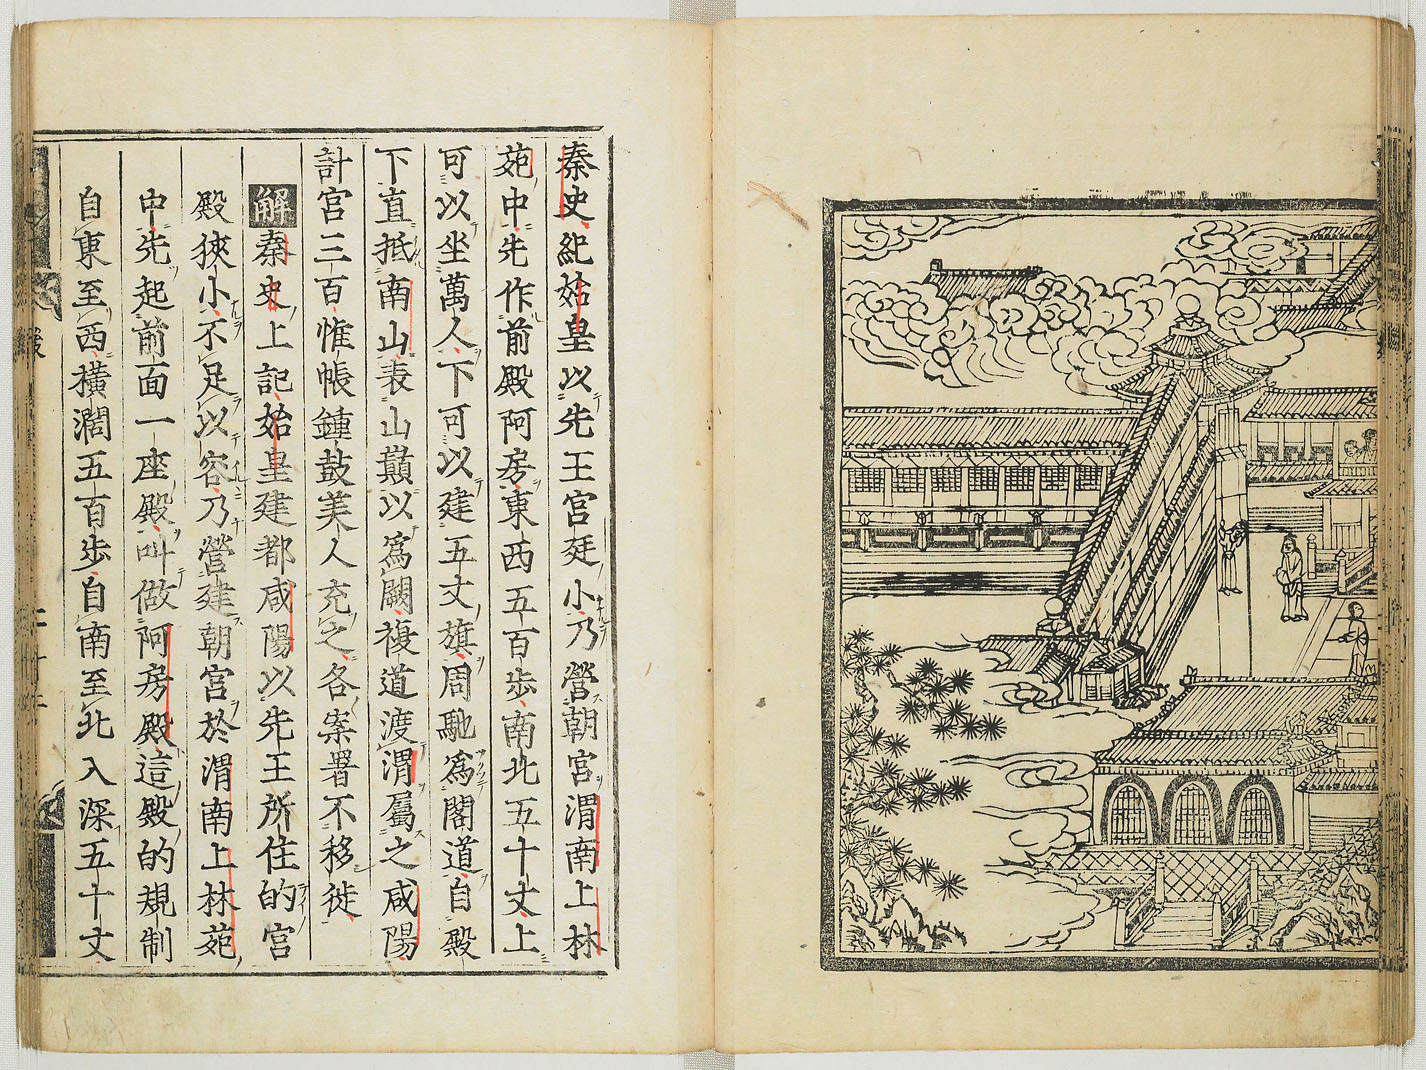 秦史紀始皇以先王宮廷小乃營朝宮渭南上林
苑中先作前殿阿房東西五百步南北五十丈上
可以坐萬人下可以建五丈旗周馳爲閣道自殿
下直抵南山表山巔以爲闕複道渡渭屬之咸陽
計宮三百帷帳鍾鼓美人充之各案署不移徙
解秦史上記始皇建都咸陽以先王所住的宮
殿狹小不足以容乃營建朝宮於渭南上林苑
中先起前面一座殿叫做阿房殿這殿的規制
自東至西橫濶五百步自南至北入深五十丈